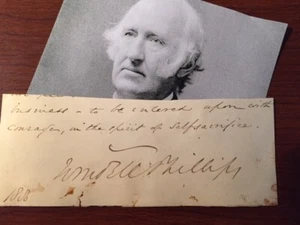 business – to be entered upon with
courage, in the spirit of self sacrifice.
Wendell Phillips